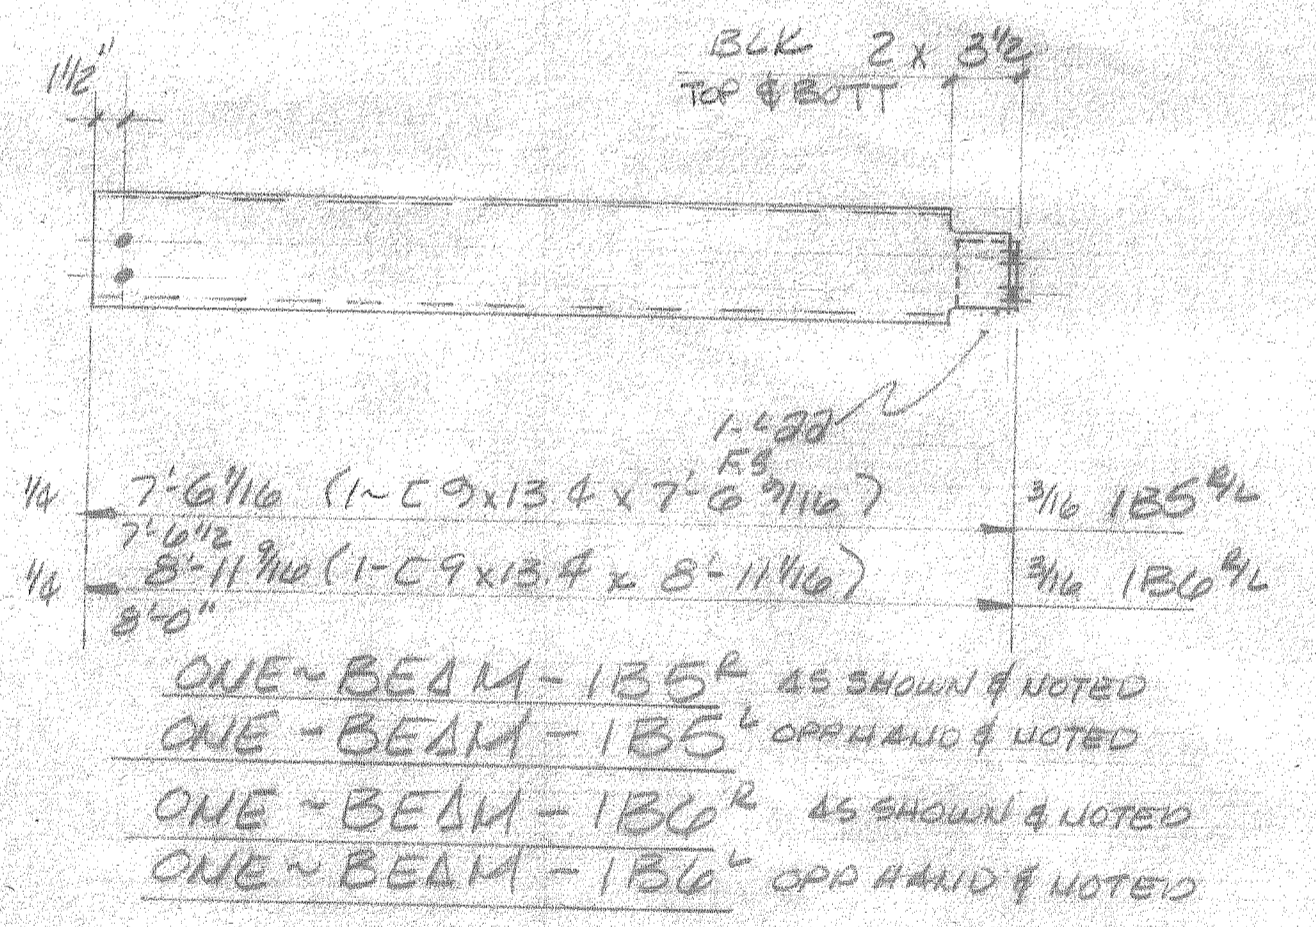 1 1/2"
BLK 2 x 3 1/2
TOP & BOTT
1-L22
FS
1/4 7'-6 1/16 (1~C 9x13.4 x 7'-6 9/16) 3/16 1B5 R/L
7'-6 1/2
1/4 8'-11 9/16 (1-C 9x13.4 x 8'-11 1/16) 3/16 1B6 R/L
8'-0"
ONE~BEAM-1B5 R AS SHOWN & NOTED
ONE-BEAM-1B5 L OPP HAND & NOTED
ONE~BEAM-1B6 R AS SHOWN & NOTED
ONE~BEAM-1B6 L OPP HAND & NOTED